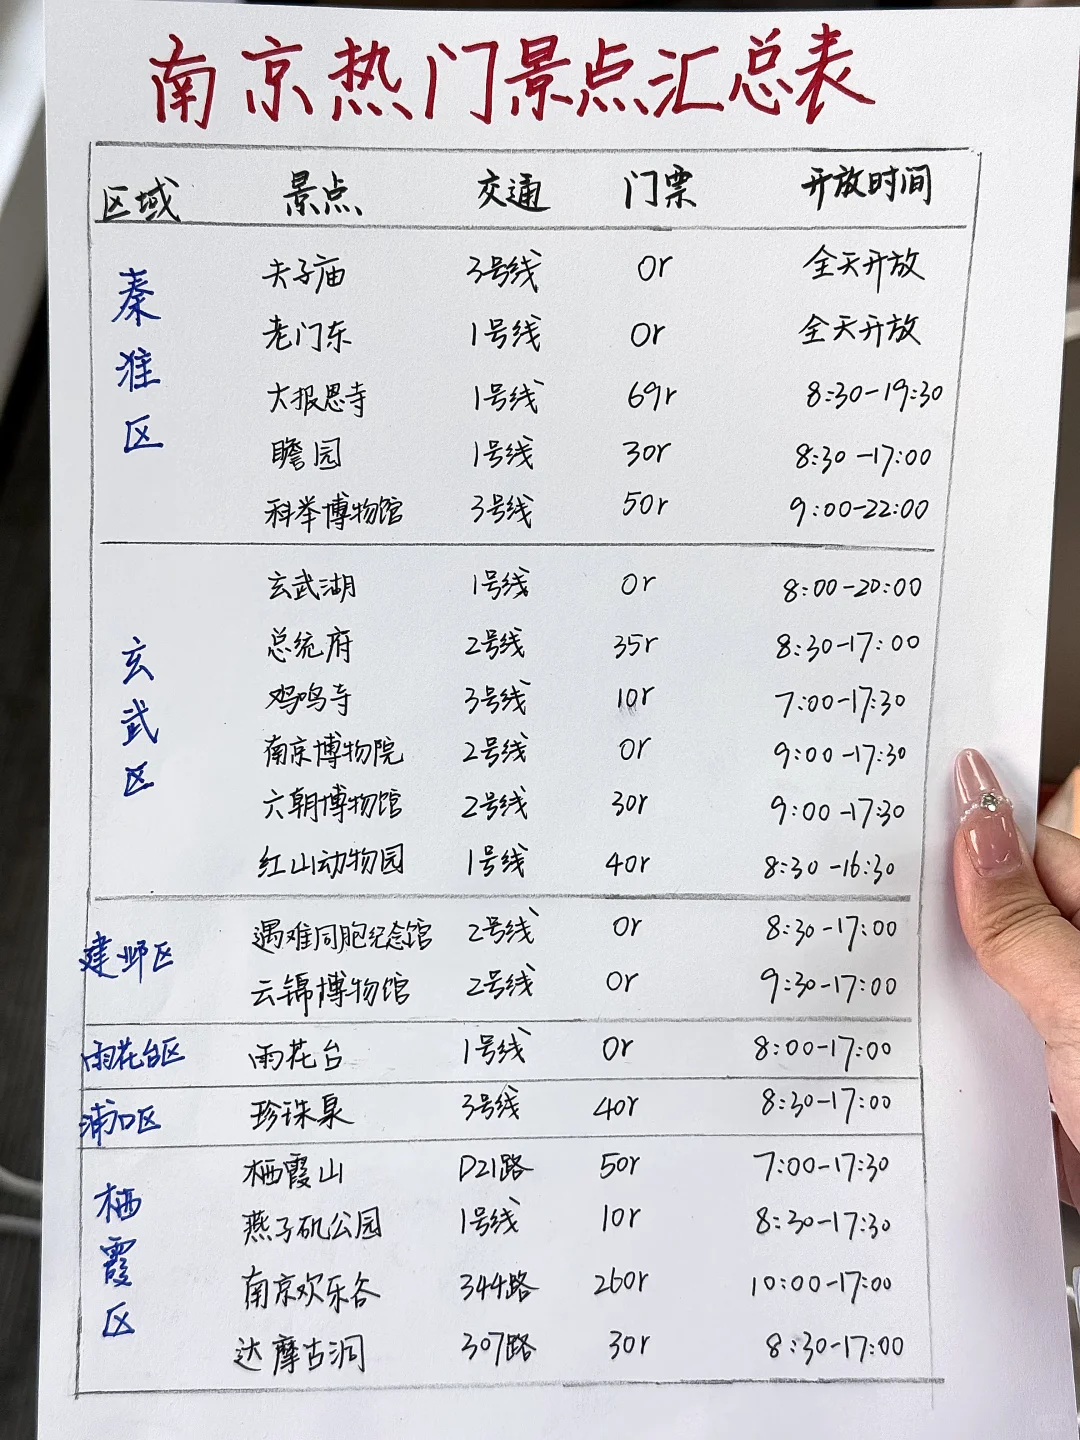 南京热门景点汇总表
区域 景点 交通 门票 开放时间
秦淮区
夫子庙 3号线 0r 全天开放
老门东 1号线 0r 全天开放
大报恩寺 1号线 69r 8:30-19:30
瞻园 1号线 30r 8:30-17:00
科举博物馆 3号线 50r 9:00-22:00
玄武区
玄武湖 1号线 0r 8:00-20:00
总统府 2号线 35r 8:30-17:00
鸡鸣寺 3号线 10r 7:00-17:30
南京博物院 2号线 0r 9:00-17:30
六朝博物馆 2号线 30r 9:00-17:30
红山动物园 1号线 40r 8:30-16:30
建邺区
遇难同胞纪念馆 2号线 0r 8:30-17:00
云锦博物馆 2号线 0r 9:30-17:00
雨花台区 雨花台 1号线 0r 8:00-17:00
浦口区 珍珠泉 3号线 40r 8:30-17:00
栖霞区
栖霞山 D21路 50r 7:00-17:30
燕子矶公园 1号线 10r 8:30-17:30
南京欢乐谷 344路 260r 10:00-17:00
达摩古洞 307路 30r 8:30-17:00